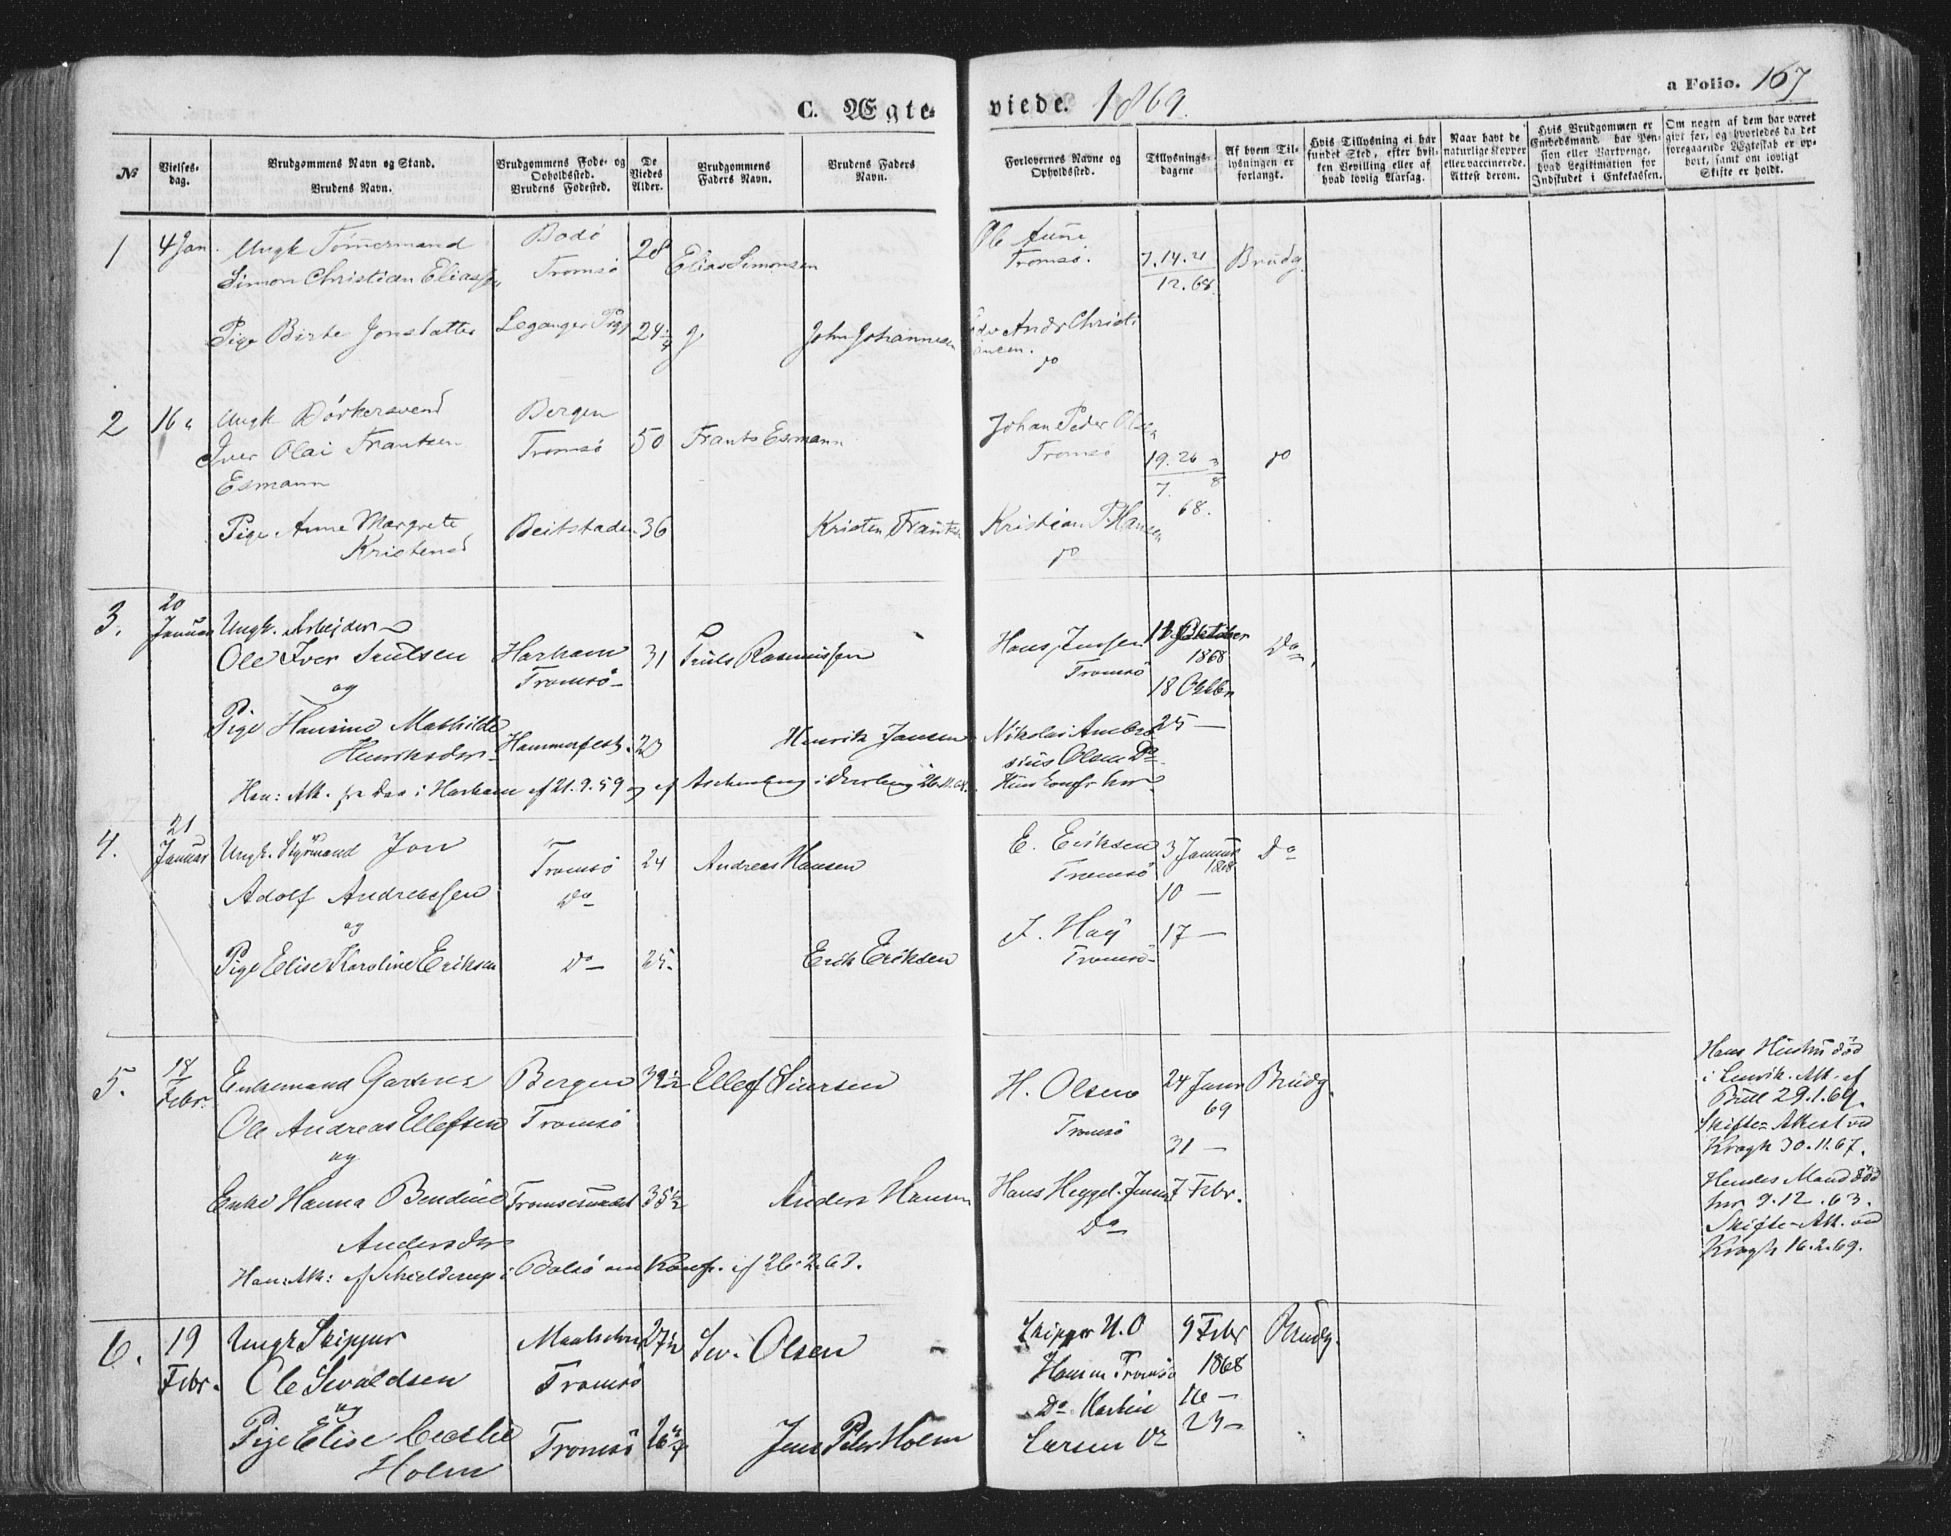 C. Ægte-
viede. 1869.
a Folio. 167
№
Vielses-
dag.
Brudgommens Navn og Stand.
Brudens Navn.
Brudgommens Føde- og
Opholdssted.
Brudens Fødested.
De
Viedes
Alder.
Brudgommens
Faders Navn.
Brudens Faders
Navn.
Forlovernes Navne og
Opholdssted.
Tillysnings-
dagene
Af hvem Til-
lysningen er
forlangt.
Hvis Tillysning ei har
fundet Sted, efter hvil-
ken Bevilling eller af
hvad lovlig Aarsag.
Naar havt de
naturlige Kopper
eller vaccinerede.
Attest derom.
Hvis Brudgommen er
Embedsmand, har Pen-
sion eller Vartpenge,
hvad Legitimation for
Indskudet i Enkekassen.
Om nogen af dem har været
gift før, og hvorledes da det
foregaaende Ægteskab er op-
hørt, samt om lovligt
Skifte er holdt.
1
4 Jan.
Ungk Tømermand
Simon Christian Eliassen
Bodö
Tromsö
28
Elias Simonsen
Ole Aune
Tromsö.
7.14.21
12.68.
Brudg.
Pige Birte Jonsdatter
Leganger
24
John Johannesen
Andr Christi
ansen.
do
2
16
Ungk Bödkersvend
Iver Olai Frantzen
Esmann
Bergen
Tromsö
50
Frants Esmann
Johan Peder Olsen
Tromsö
19.26
7.
68.
do
Pige Anne Margrete
Kristensd
Beitstaden
36
Kristen Frantzen
Kristian P Hansen
do
3.
20
Januar
Ungk. Arbejder
Ole Iver Trulsen
og
Harham
Tromsö
31
Truls Rasmussen
Hans Jensen
Tromsö
11 Oktober
1868
18 Oktbr
25 —
Do
Pige Hansine Mathilde
Henriksdtr
Hammerfest
23
Henrik Jansen
Nikolai Ambro
sius Olsen Do
Han: Att. fra Daa i Harham af 21.9.59 og af
4.
21
Januar
Ungk. Styrmand Jon
Adolf Andreassen
og
Tromsö
Do
24
Andreas Hansen
E. Eriksen
Tromsö
3 Januar
1868
10 —
17 —
Do
Pige Elise Karoline Eriksen
Do
25.
Erik Eriksen
J. Hay
Tromsö
5.
18
Febr.
Enkemand Gartner
Ole Andreas Ellefsen
og
Bergen
Tromsö
39½
Ellef Siversen
H. Olsen
Tromsö
24 Janr
69
31 —
7 Febr.
Brudg.
Enke Hanna Bendine
Andersdtr
Tromsesundet
35½
Anders Hansen
Hans Heggel. Jensen
Do
Han: Att: af Schielderup i Bolsö om Konf. af 26.2.63.
Hans Hustru död
i Lenvik. Att. af
Bull 29.1.69.
Skifte-Attest ved
Krogh 30.11.67.
Hendes Mand död
her 9.12.63.
Skifte-Att. ved
Krogh 16.2.69.
6.
19
Febr.
Ungk Skipper
Ole Sivaldsen
og
Maalselven
Tromsö
27½
Siv. Olsen
Skipper H. O
Hansen Tromsö
Do Martin
Larsen Do
9 Febr
1868
16 —
23 —
Brudg.
Pige Elise Cecilie
Holm
Tromsö
26¾
Jens Peter Holm